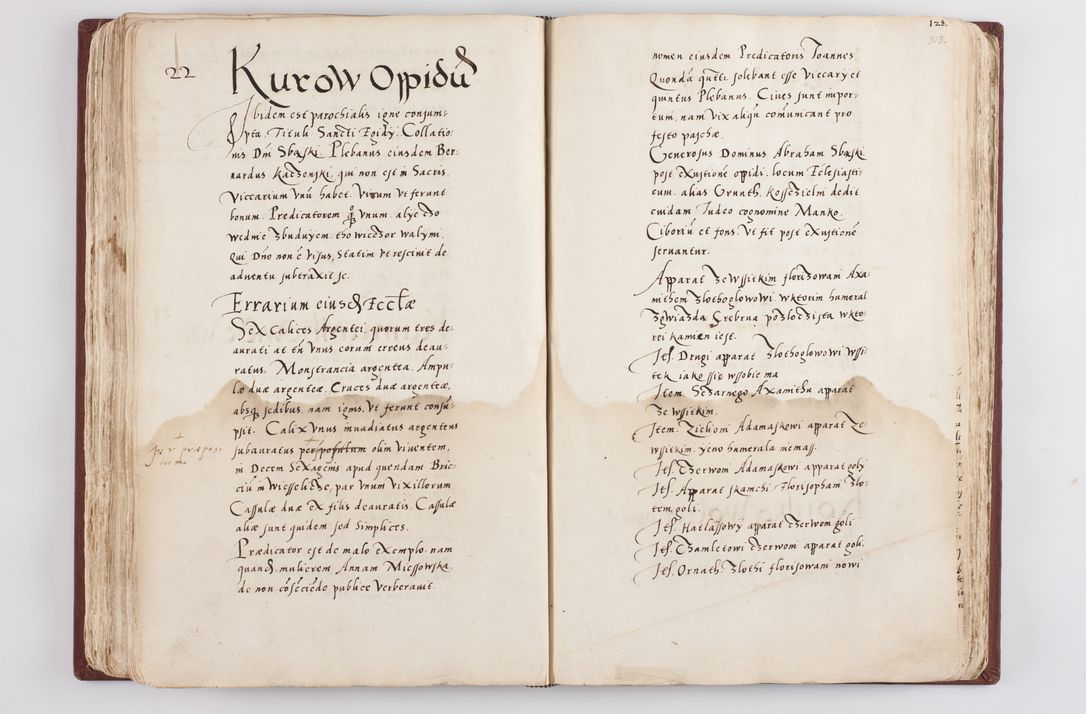 22
Kurow Oppidū
Ibidem est parochialis igne consum-
pta. Tituli Sancti Egidy. Collatio-
nis Dnī Sbąski. Plebanus eiusdem Ber-
nardus Kaczenski, qui non est in Sacris.
Viccarium Vnū habet. Virum Vt ferunt
bonum. Predicatorem qz Vnum. alye czo
wednie zbuduyem. tho wieczor walymi.
Qui Dño non ē Visus, Statim Vt resciuit de
aduentu subtraxit se.
Errarium eiusd Eccłæ
Sex Calices Argentei quorum tres de-
aurati at tñ Vnus eorum erreus deau-
ratus. Monstrancia argentea. Ampu-
læ duæ argenteæ. Cruces duæ argenteæ,
absqz sedibus. nam ignis, Vt ferunt consū-
psit. Calix Vnus inuadiatus argenteus
subauratus per spofatum olim Viuentem,
in Decem Sexagenis apud quendam Bric-
ciū in Wiesseliże, par Vnum Vixillorum
Cassulæ duæ ex filis deauratis. Cassulæ
aliæ sunt quidem sed Simplices.
Prædicator est de malo exemplo. nam
quand. mulierem Annam Miessowska.
de non cōsēciēdo publice Verberauit.
128.
313.
nomen eiusdem Predicatoris Ioannes
Quondā qtti solebant esse Viccary et
quintus Plebanus. Ciues sunt impor-
tuni, nam Vix aliqn comūnicant pro
festo paschæ.
Generosus Dominus Abraham Sbąski
post exustionē opidi. locum Eclesiasti-
cum. alias Grunth. Kosscżielni dedit
cuidam Iudeo cognomine Manko.
Ciboriū et fons. Vt fit post exustionē
seruantur.
Apparat ze wssitkim florizowani Axa-
mithem zlothoglowowi wktorim humeral
zgwiazda Srebrna pozloczista wkto-
rei kamien iest.
Ite. Drugi apparat zlothoglowowi wssi-
tek iako ssie wssobie ma
Item. Sczarnego Axamithu apparat
ze wssitkim.
Item. Zielioni Adamaskowi apparat ze
wssitkim. yeno humerala niemass.
Ite. Czerwoni Adamaskowi apparat goly
Ite. Apparat skamchi. Florisopham zlo-
tem goli.
Ite. Hatlassowy apparat czerwoni goli
Ite. Czamletowi czerwoni apparat goli.
Ite. Ornath. zlothi florisowani nowi